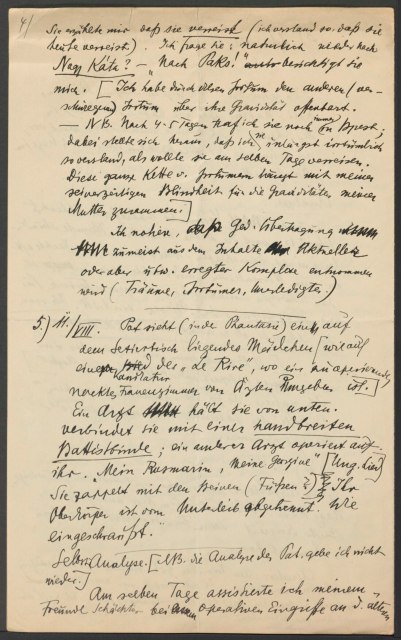 4/
Sie erzählte mir daß sie verreist (ich verstand so: daß sie
heute verreist). Ich frage sie: natürlich wieder nach
Nagy Káta? – „Nach Paks!" berichtigt sie
mich. [Ich habe durch diesen Irrtum den anderen (ver-
schwiegenen) Irrtum über ihre Gravidität offenbart.
– NB. Nach 4-5 Tagen traf ich sie noch immer in Bpest;
dabei stellte sich heraus, daß ich sie unlängst irrtümlich
so verstand, als wollte sie am selben Tage verreisen.
Diese ganze Kette v. Irrtümern hängt mit meiner
seinerzeitigen Blindheit für die Graviditäten meiner
Mutter zusammen.]
Ich notiere, daß Ged. Übertragung
zumeist aus dem Inhalte aktueller
oder aber usw. erregter Komplexe entnommen
wird (Träume, Irrtümer, Unerledigtes.)
5.) 11./VIII. Pat sieht (in der Phantasie) ein auf
dem Seziertisch liegendes Mädchen [wie auf
einem Bild des „de Rire", wo ein zu operierendes
nacktes Frauenzimmer von Ärzten umgeben ist.]
Karikatur
Ein Arzt hält sie von unten.
verbindet sie mit einer handbreiten
Battistbinde; ein anderer Arzt operiert auf
ihr. „Mein Rosmarin, meine Georgine" [Ung. Lied]
Sie zappelt mit den Beinen (Füßen). Ihr
Oberkörper ist vom Unterleib abgetrennt. Wie
eingeschraubt."
Selbstanalyse. [NB. die Analyse des Pat. gebe ich nicht
wieder.]
Am selben Tage assistierte ich meinem
Freunde Schächter bei operativen Eingriffe an d. alten